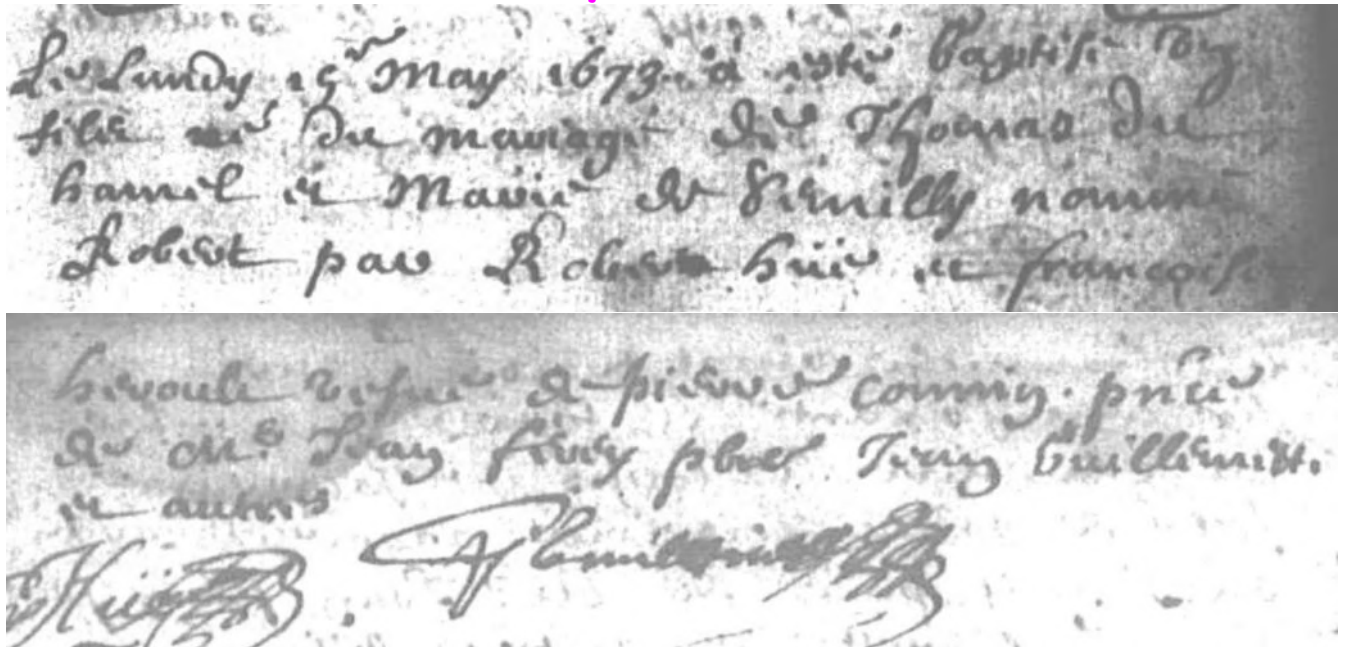 Le Lundy 15e May 1673 a esté baptisé vn
filz né du mariage de Thomas du
hamel et Marie de Semilly nommé
Robert par Robert hüe et francoise
heroult vefue de pierre commin pnce
de Me Jean fery pbre Jean Guillemet.
et autres
Hüe